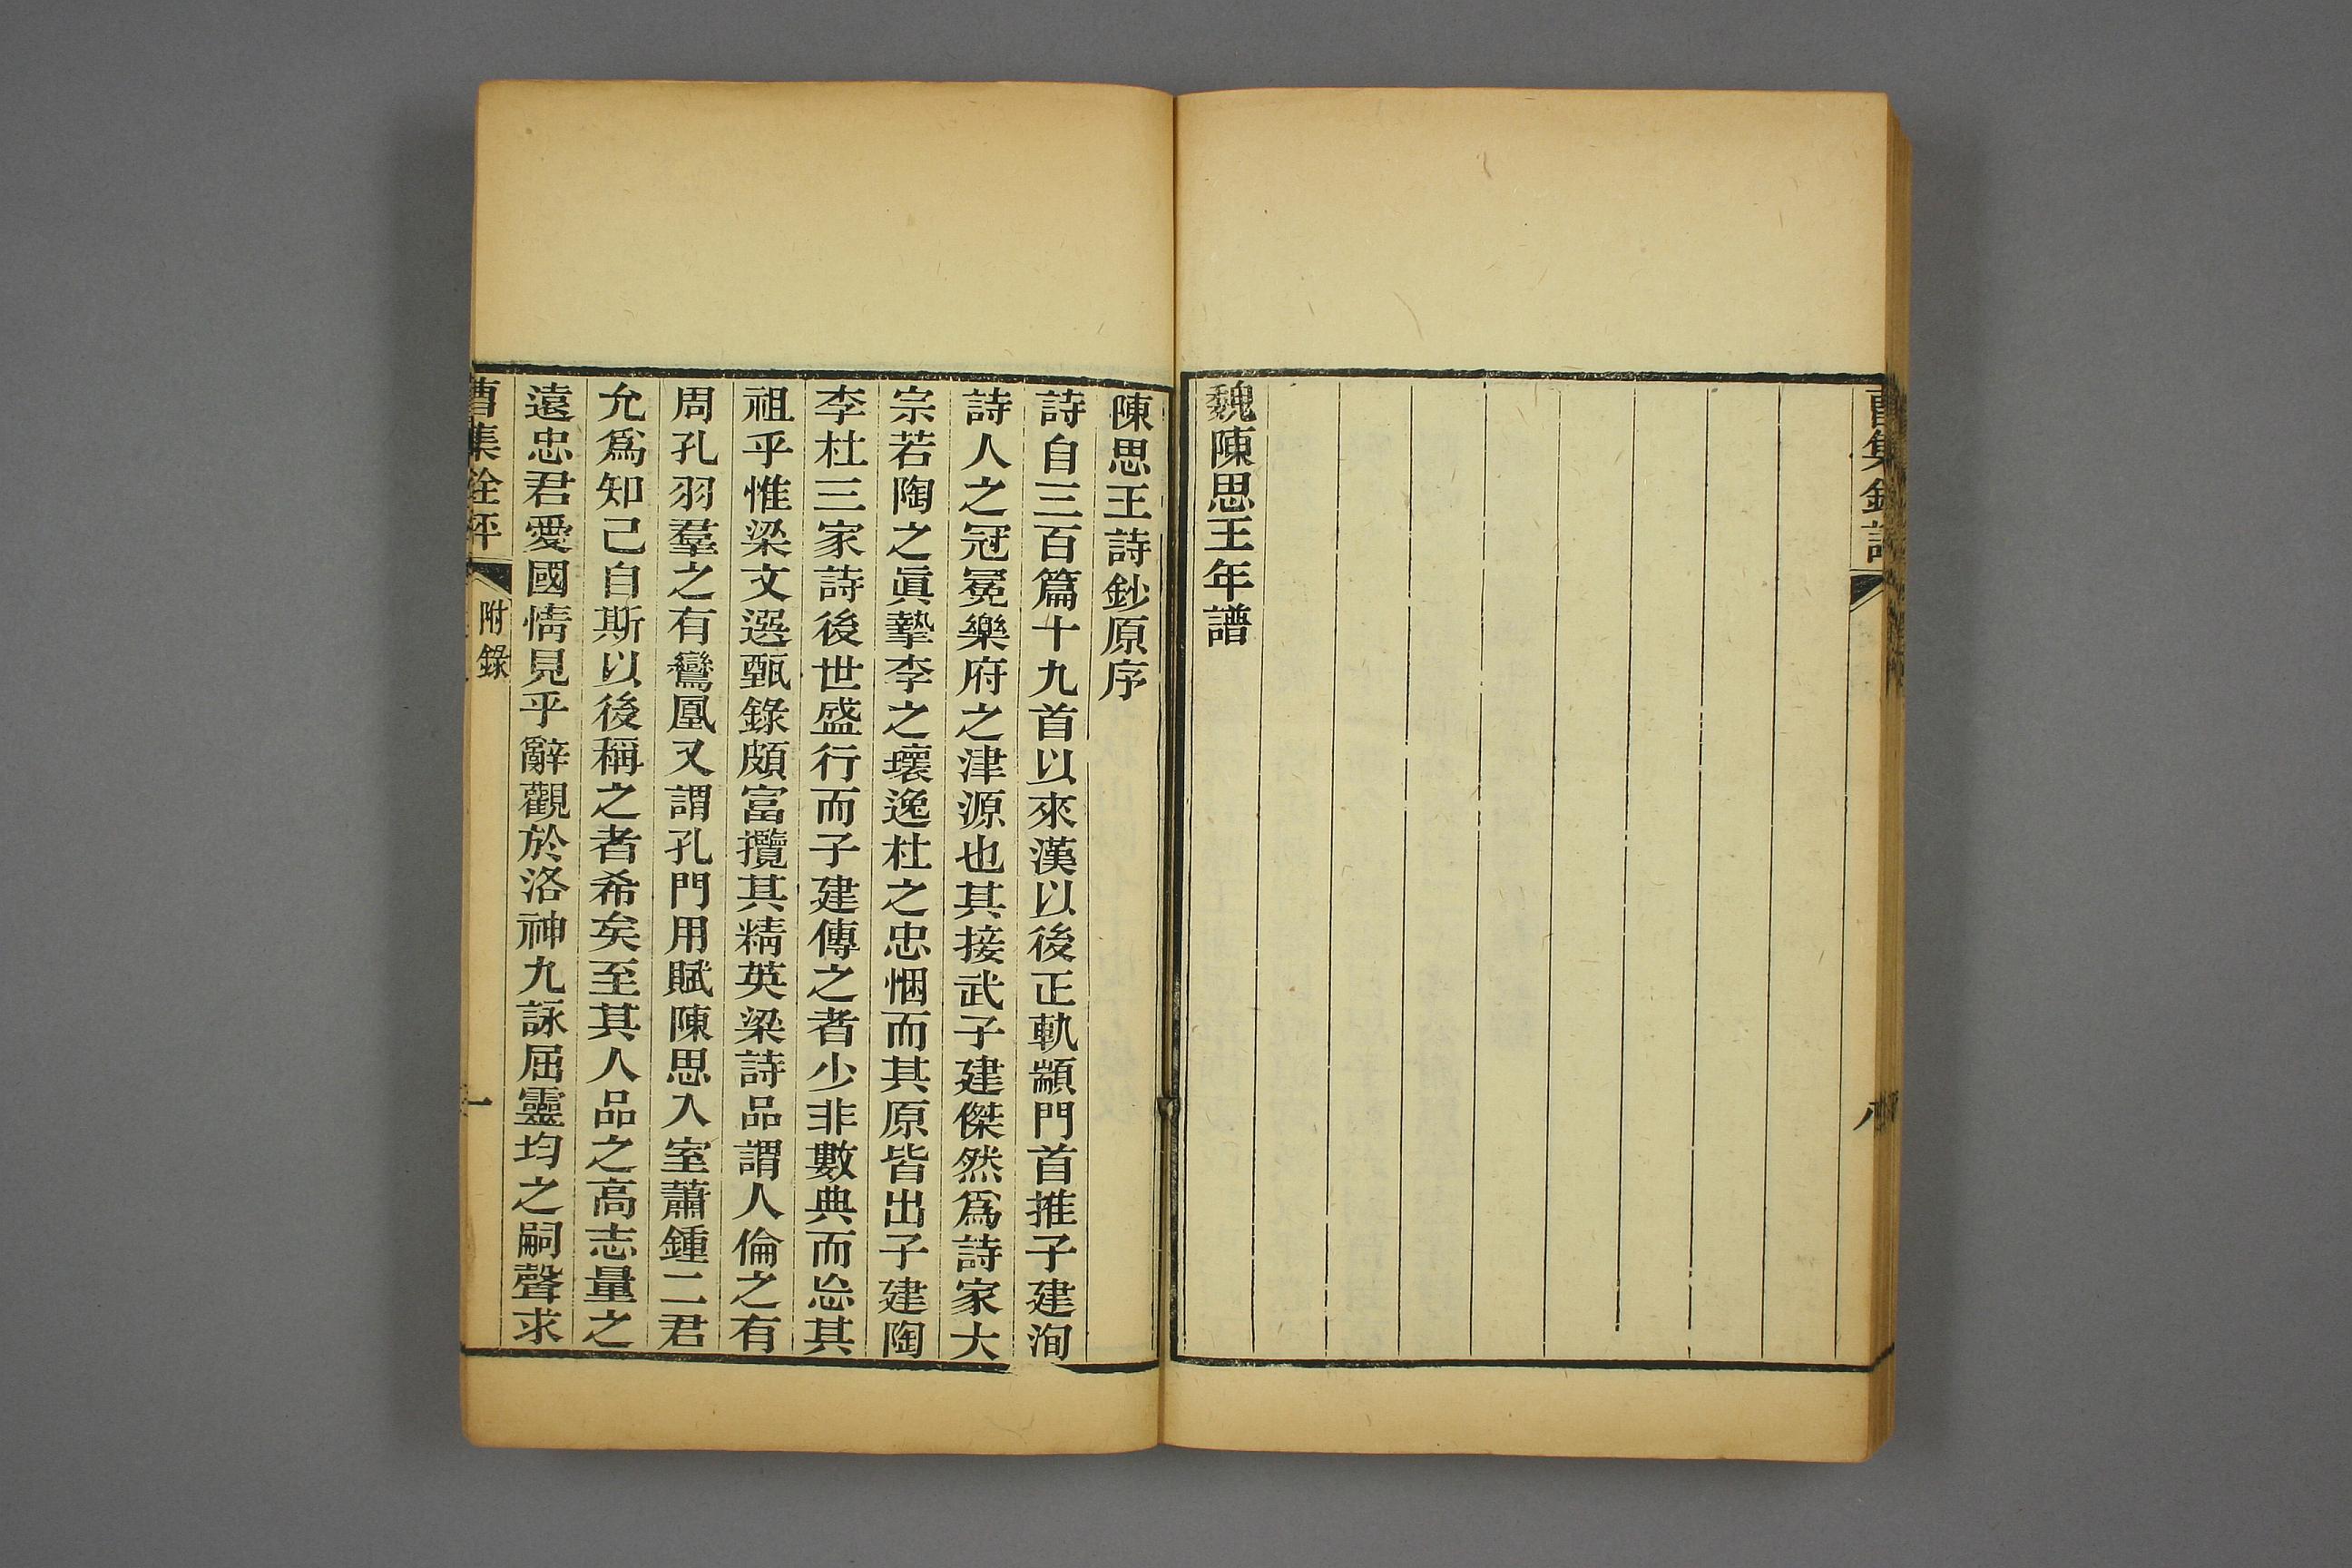 曹集銓評
八
魏陳思王年譜
陳思王詩鈔原序
詩自三百篇十九首以來漢以後正軌顓門首推子建洵
詩人之冠冕樂府之津源也其接武子建傑然爲詩家大
宗若陶之眞摯李之瓌逸杜之忠悃而其原皆出子建陶
李杜三家詩後世盛行而子建傳之者少非數典而忘其
祖乎惟梁文選甄錄頗富攬其精英梁詩品謂人倫之有
周孔羽羣之有鸞凰又謂孔門用賦陳思入室蕭鍾二君
允爲知己自斯以後稱之者希矣至其人品之高志量之
遠忠君愛國情見乎辭觀於洛神九詠屈靈均之嗣聲求
曹集銓評
附錄
一